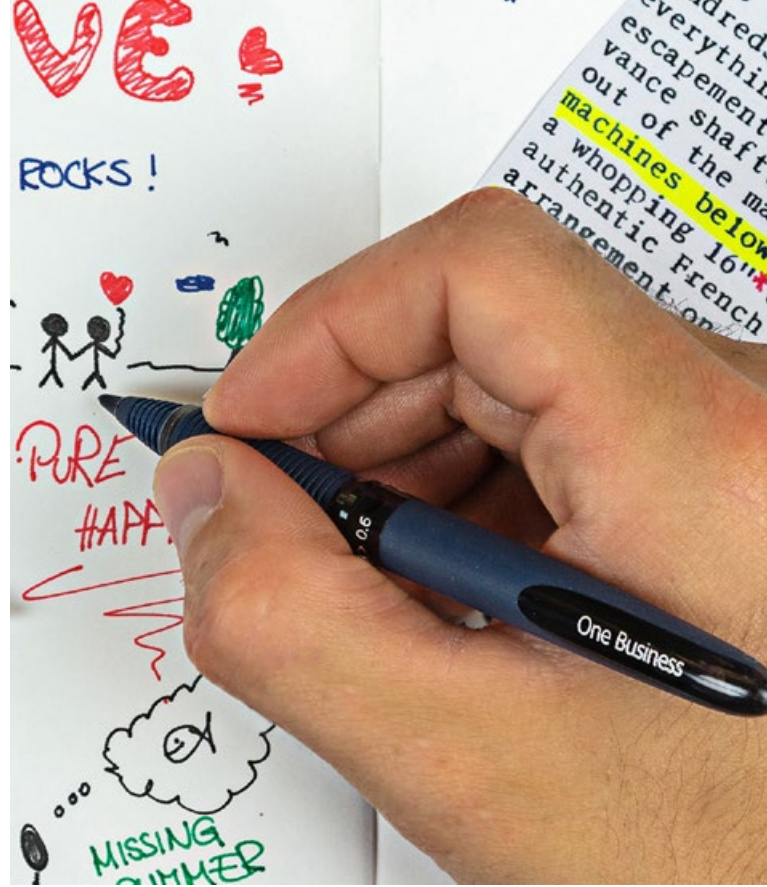 VE
ROCKS!
PURE
HAPP
MISSING
SUMMER
> 0.6
One Business
dreds
everythin
escapement
vance shaft
out of the ma
machines below
a whopping 16"*
authentic French
arrangement on